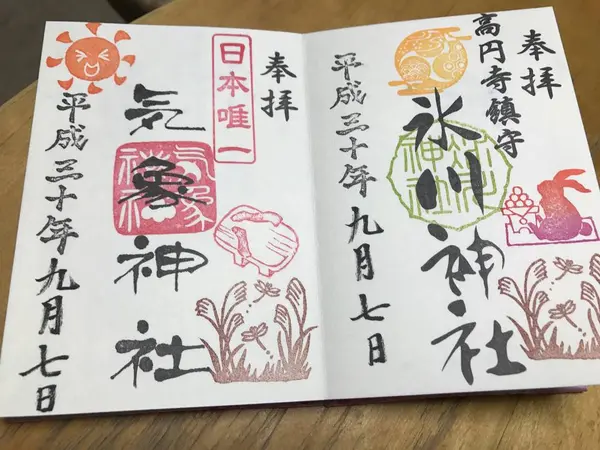 奉拝
高円寺鎮守
氷川神社
平成三十年九月七日
奉拝
日本唯一
気象神社
平成三十年九月七日